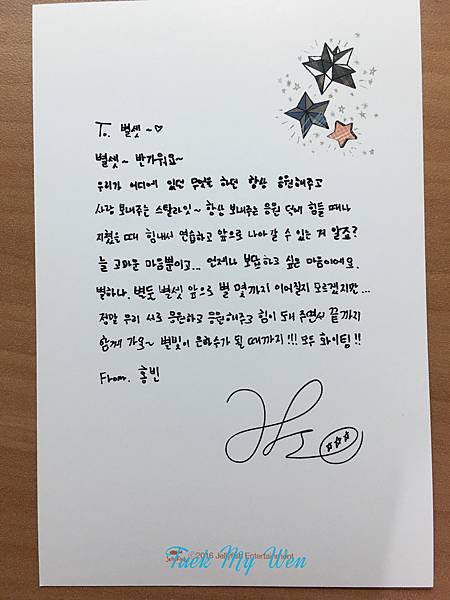 To. 별셋~♡
별셋~ 반가워요~
우리가 어디에 있던 무엇을 하던 항상 응원해주고
사랑 보내주는 스탈라잇~ 항상 보내주는 응원 덕에 힘들 때나
지쳤을 때 힘내서 연습하고 앞으로 나아갈 수 있는 거 알죠?
늘 고마운 마음뿐이고... 언제나 보답하고 싶은 마음이에요.
별하나. 별둘 별셋 앞으로 별 몇까지 이어질지 모르겠지만...
정말 우리 서로 응원하고 응원해주고 힘이 돼 주면서 끝까지
함께 가요~ 별빛이 은하수가 될 때까지!!! 모두 화이팅!!
From. 홍빈
©2016 Jellyfish Entertainment
Tuek My Wen